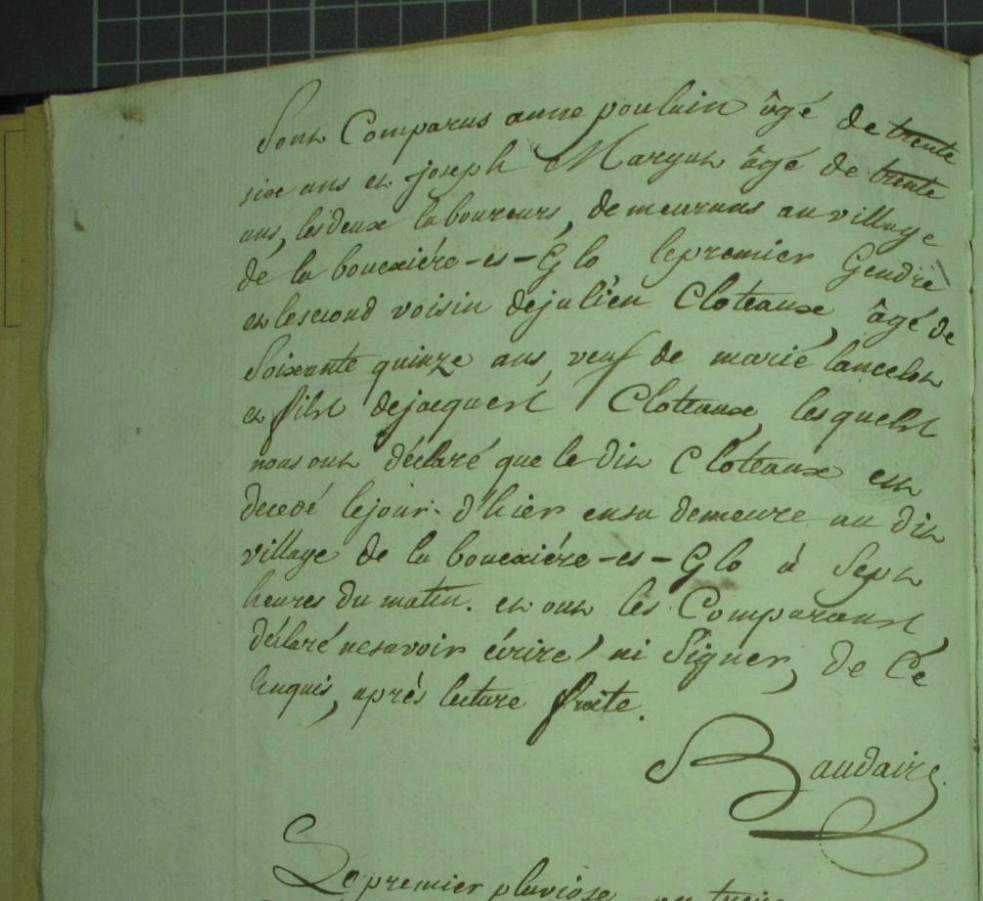 Sont Comparus anne poulain âgé de trente
six ans et joseph Margat âgé de trente
ans, les deux laboureurs, demeurans au village
dé la bouexiére-es-Glo le premier Gendre
et le second voisin de julien Cloteaux, âgé de
Soixante quinze ans, veuf de marie lancelot
et fils de jacques Cloteaux, lesquels
nous ont déclaré que le dit Cloteaux est
decedé le jour d'hier en sa demeure au dit
village de la bouexiére-es-Glo à Sept
heures du matin. et ont les Comparans
déclaré ne savoir écrire ni Signer, de Ce
Enquis, après lecture faite.
Baudaire
Le premier pluviose an treize